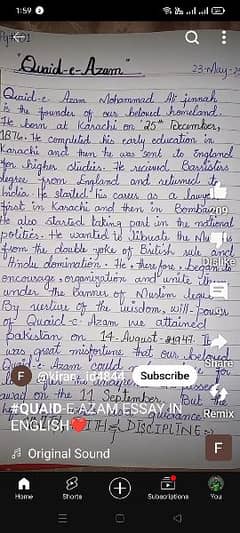 1:59
23-May-
"Quaid-e-Azam"
Quaid-e-Azam Mohammad Ali jinnah
is the founder of our beloved homeland.
He born at Karachi on "25th December,
1876. He completed his early education in
Karachi and then he was sent to England
for higher studies. He recieved Barristers
degree from England and returned to
India. He started his career as a lawyer
first in Karachi and then in Bombay
He also started taking part in the national
politics. He wanted to liberate the Mu
from the double yoke of British rule and
Hindu domination. He therefore, began to
encourage, organization and unite
under the banner of Muslim league
By vertue of the wisdom, will-power
of Quaid-e-Azam we attained
pakistan on 14-August-1947. It
was great misfortune that our beloved
Quaid-e-Azam could for
away on the 11 September. But the
guidance
DISCIPLINE
Dislike
Share
Remix
F
Subscribe
#QUAID-E-AZAM ESSAY IN
ENGLISH❤️
Original Sound
F
Home
Shorts
Subscriptions
You